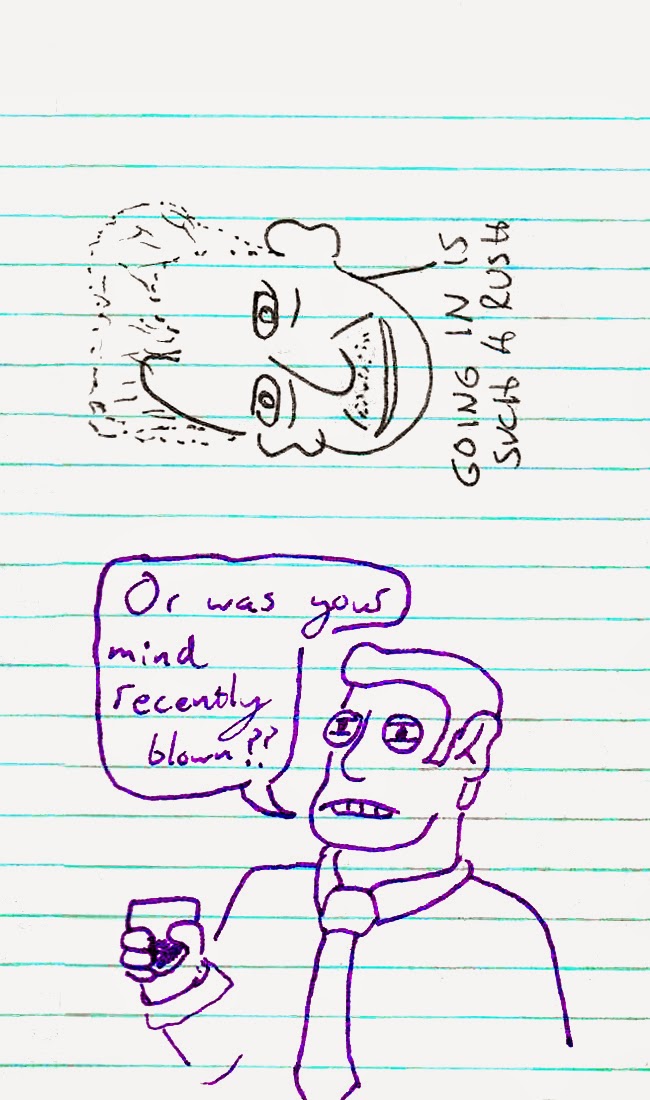 GOING IN IS
SUCH A RUSH
Or was your
mind
recently
blown??